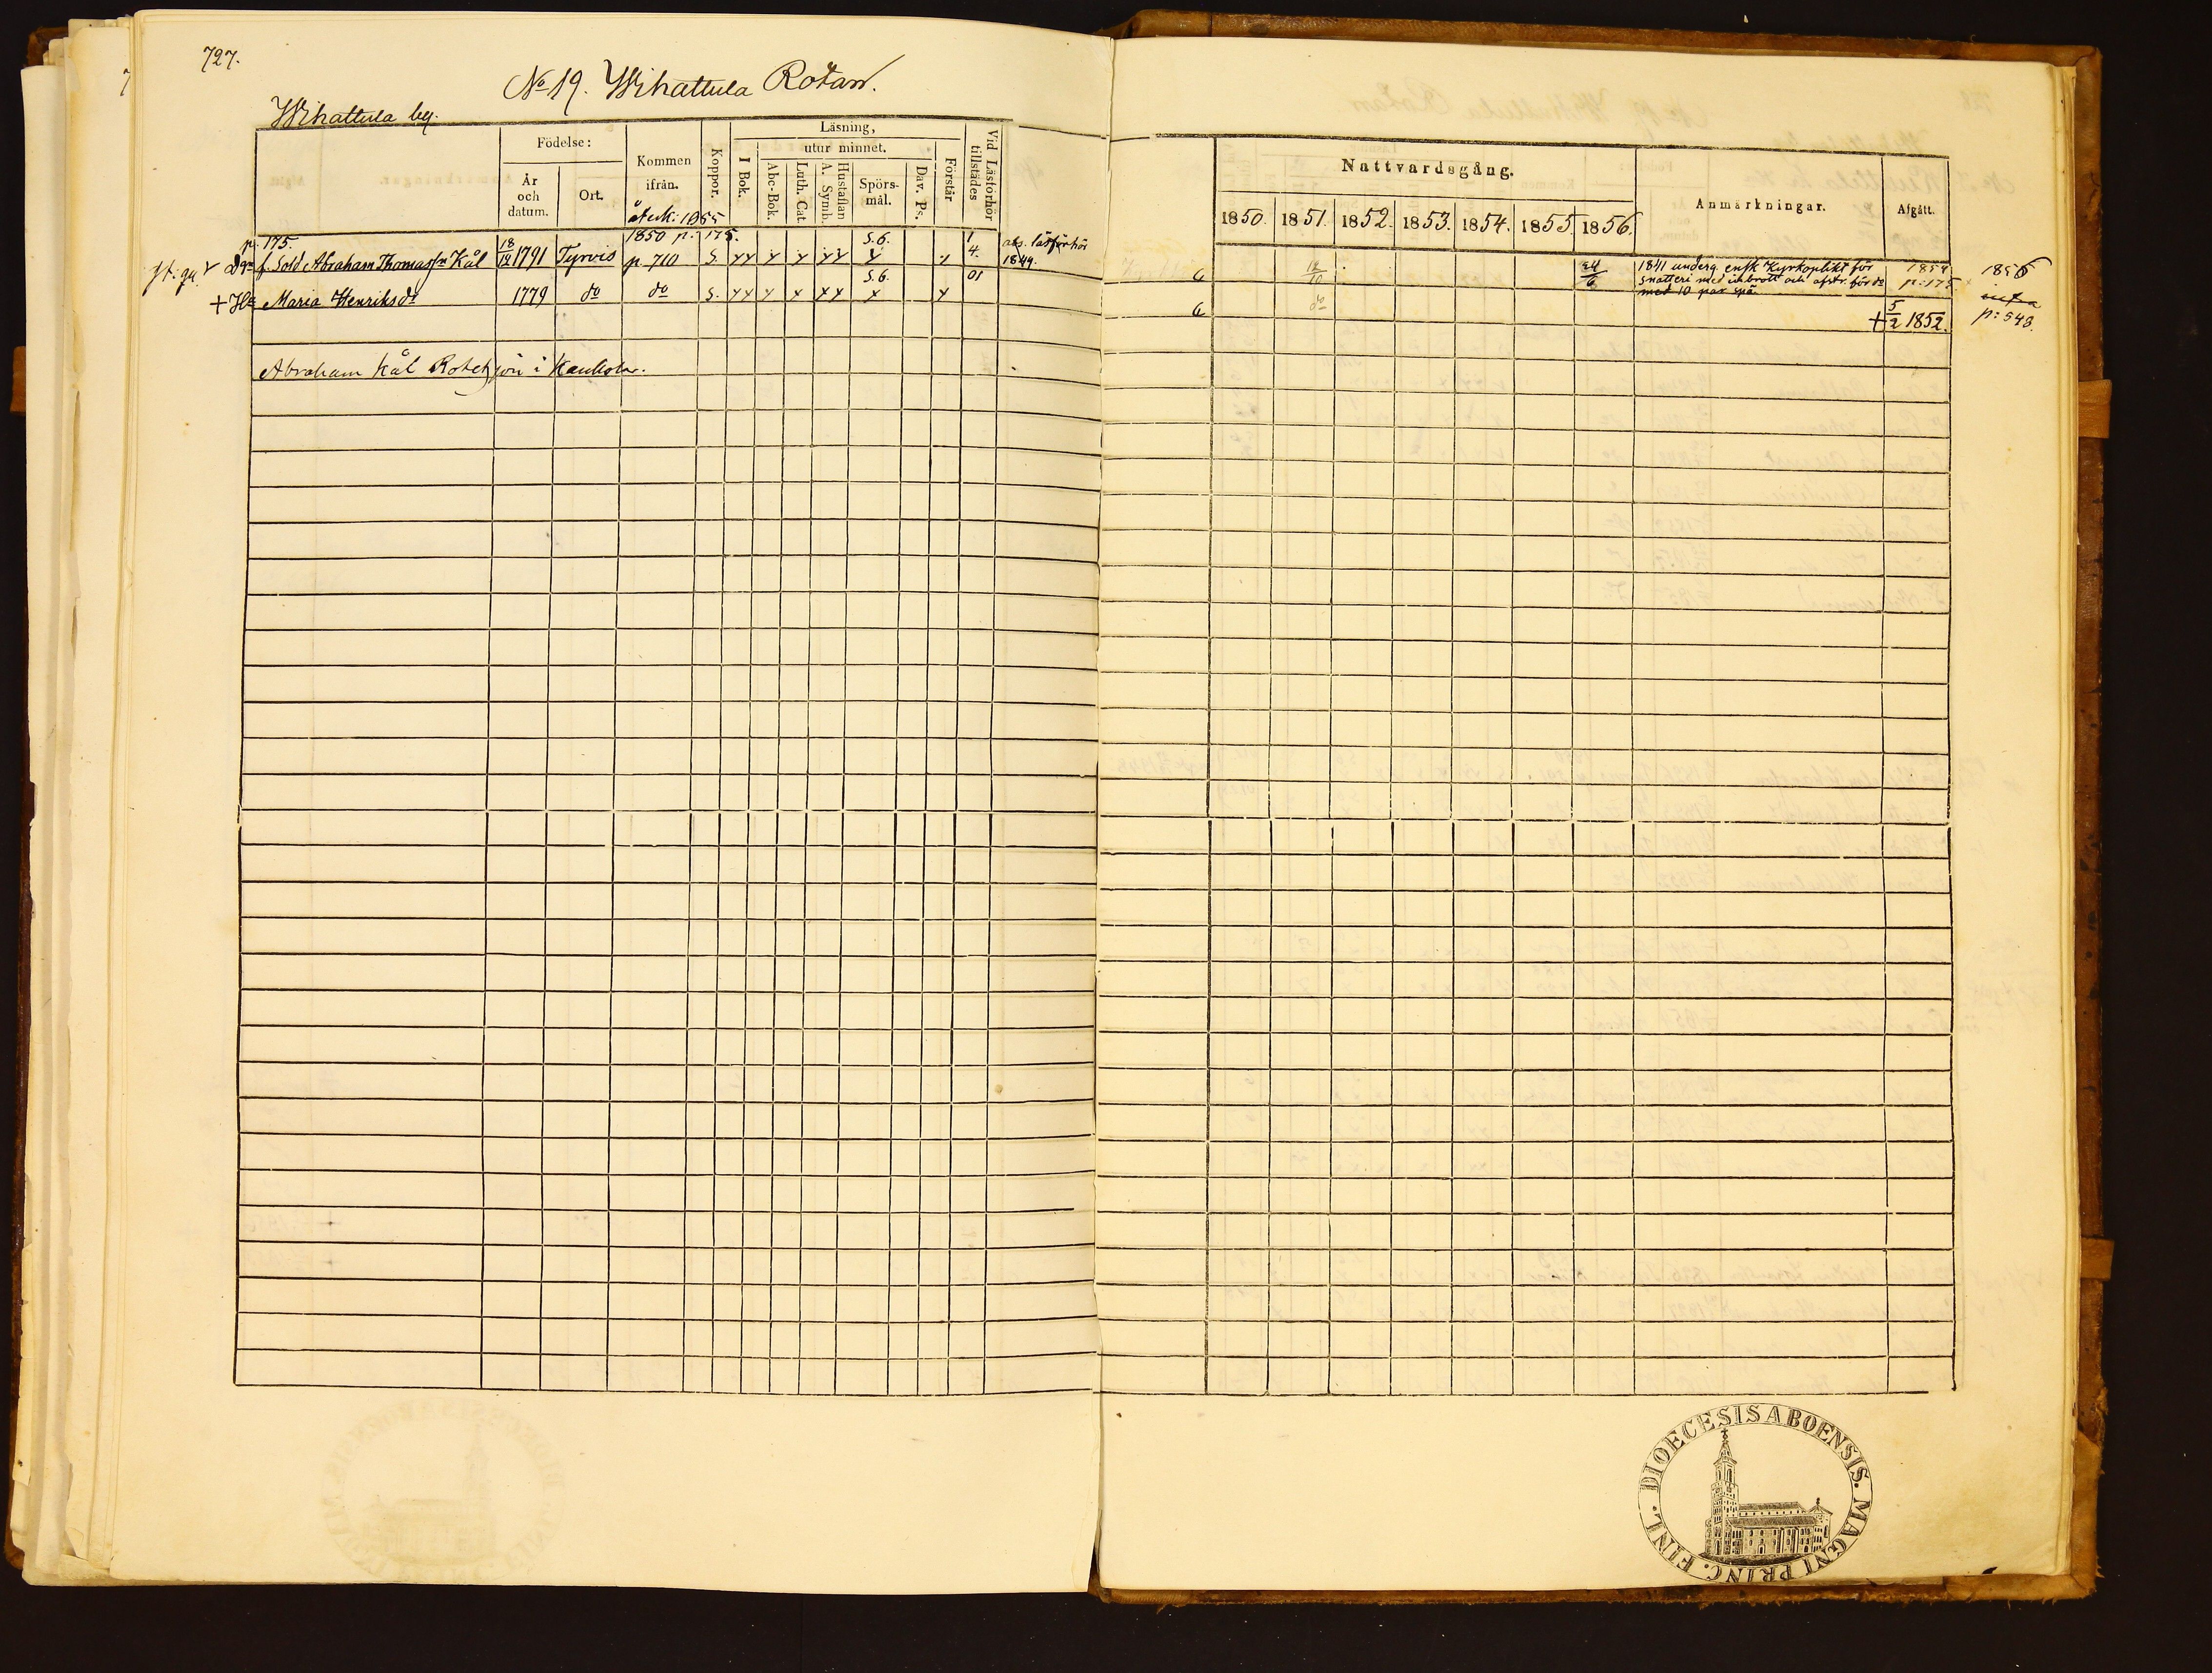 727.
No 19. Wihattula Rotan.
Wihattula by.
Födelse:
År och datum.
Ort.
Kommen ifrån.
Koppor.
Läsning,
I Bok.
utur minnet.
Abc-Bok.
Luth. Cat.
Hustaflan A. Symb.
Spörs-mål.
Dav. Ps.
Förstår
Vid Läsförhör tillstädes
Nattvardsgång.
1850. 1851. 1852. 1853. 1854. 1855. 1856.
Anmärkningar.
Afgått.
återk: 1855
p. 175. 1850 p. 175. S.6. 1
f. Sold Abraham Thomasson Kål 18/12 1791 Tyrvis p. 710 S. 4. 1849. 12/10 24/6
1841 underg. ensk Kyrkoplikt för 1854 1856
snatteri med inbrott och afstr. för do p: 175
med 10 par spö.
S.6. 01
+ Maria Henriksdr 1779 do do S. do + 5/2 1852. p: 543.
Abraham Kål Rotehjon i Kaukola.
DIOECESIS ABOENSIS. MAGNI PRINC. FINL.